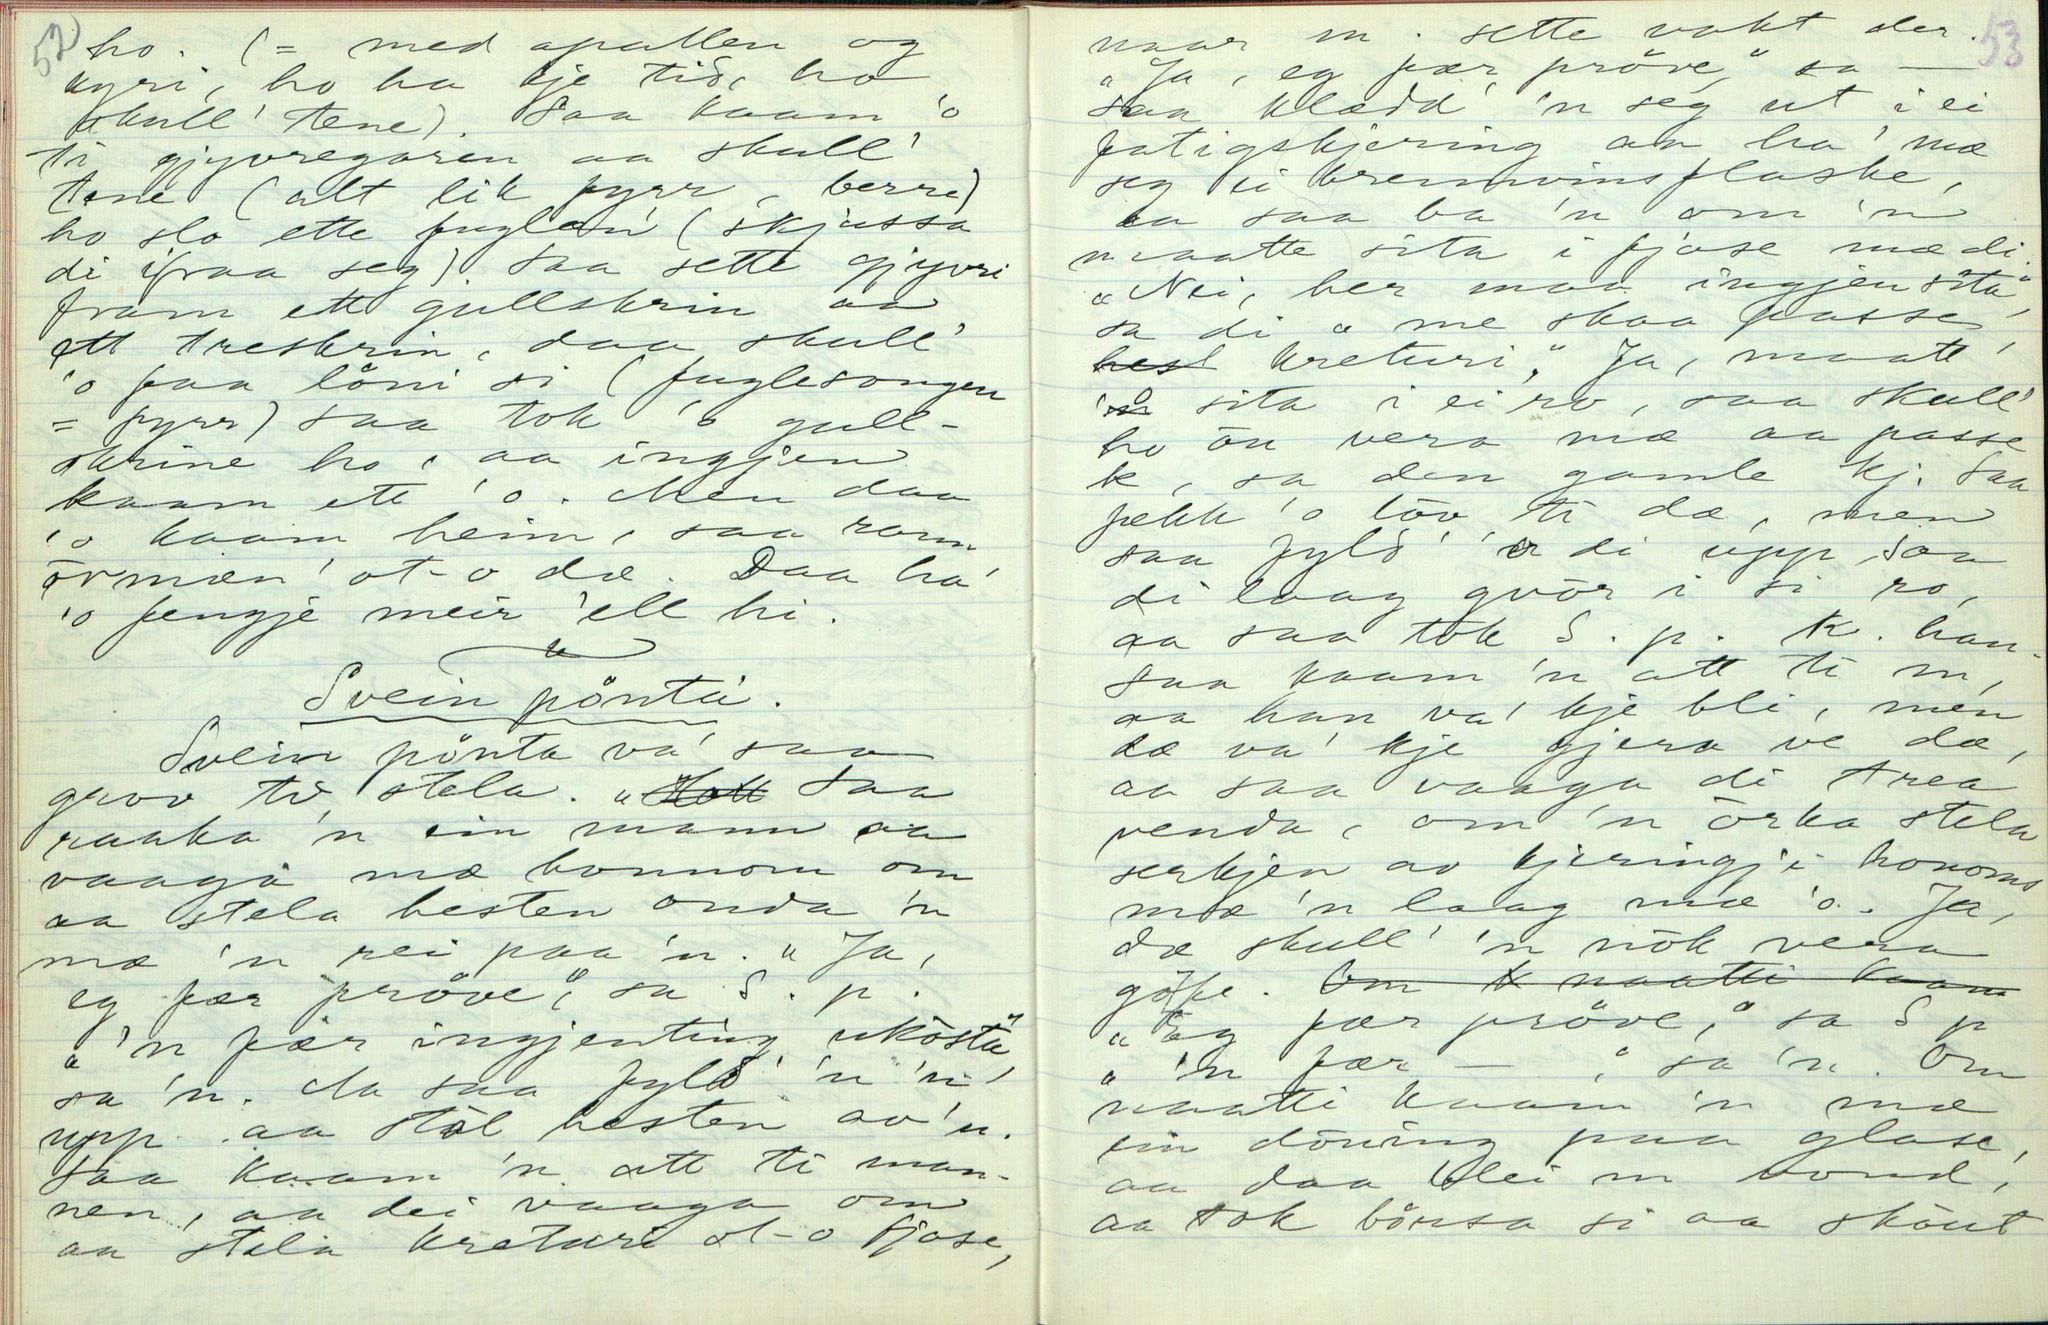 52
ho. (= med apallen og
kyri, ho ha kje tid, ho
skull' tene). Saa kaam 'o
ti gjyvregaren aa skull'
tene (alt lik fyrr, berre)
ho slo ette fuglan' (skjassa
di ifraa seg) Saa sette gjyvri
fram ett gullskrin aa
ett treskrin, daa skull'
'o faa löni si (fuglesongen
= fyrr) saa tok 'o gull-
skrine ho, aa ingjen
kaam ett 'o. Men daa
'o kaam heim, saa rann
örmæn' ot-o dæ. Daa ha'
'o fengje meir 'ell hi.
Svein pönta.
Svein pönta va' saa
grov ti stela. Saa
raaka 'n ein mann aa
vaaga mæ honnom om
aa stela hesten onda 'n
mæ 'n rei paa 'n. "Ja,
eg fær pröve," sa S. p.
"'n fær ingjenting ukösta"
sa 'n. Aa saa fyld' 'n 'n
upp aa stal hesten av 'n.
Saa kaam 'n att ti man-
nen, aa dei vaaga om
aa stela kreturi ot-o fjose,
53
naar m. sette vakt der.
"Ja, eg fær pröve," sa —
saa klædd' 'n seg ut i ei
fatigskjering aa ha' mæ
seg ei brennvinsflaske,
aa saa ba 'n om 'n
maatte sita i fjose mæ di.
"Nei, her maa ingjen sita",
sa di "me skaa passe
hest kreturi." Ja, maatt'
'o sita i ei ro, saa skull'
ho ön vera mæ aa passe
k, sa den gamle kj. Saa
fekk 'o löv ti dæ, men
saa fyld' 'o di upp saa
di laag qvör i si ro,
aa saa tok S. p. k. han.
Saa kaam 'n att ti m,
aa han va' kje bli, men
dæ va' kje gjera ve dæ,
aa saa vaaga di trea
venda, om 'n örka stela
serkjen av kjeringji honoms
mæ 'n laag mæ 'o. Ja,
dæ skull' 'n nök vera
göfe. Om k naatti kaam
"Eg fær pröve," sa S p
"'n fær — " sa 'n. Om
naatti kaam 'n mæ
ein döning paa glase,
aa daa blei m vond,
aa tok börsa si aa sköut